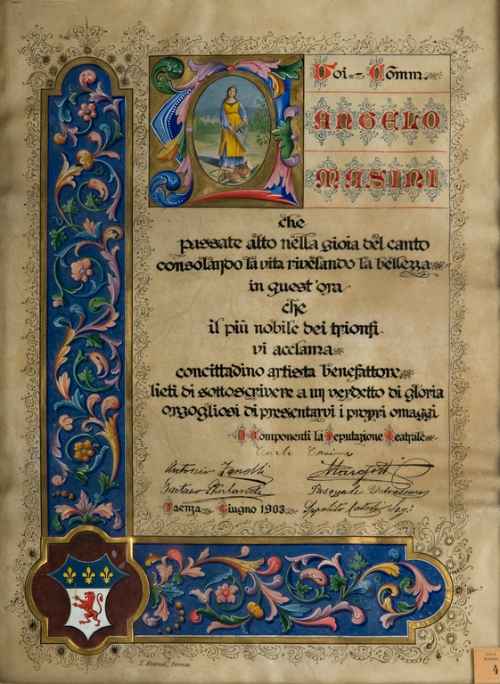 A Voi - Comm.
ANGELO
MASINI
che
passate alto nella gioia del canto
consolando la vita rivelando la bellezza
in quest'ora
che
il più nobile dei trionfi
vi acclama
concittadino artista benefattore
lieti di sottoscrivere a un verdetto di gloria
orgogliosi di presentarvi i propri omaggi
I Componenti la Deputazione Teatrale
Antonio
Pasquale
Faenza Giugno 1903
Ippolito
4